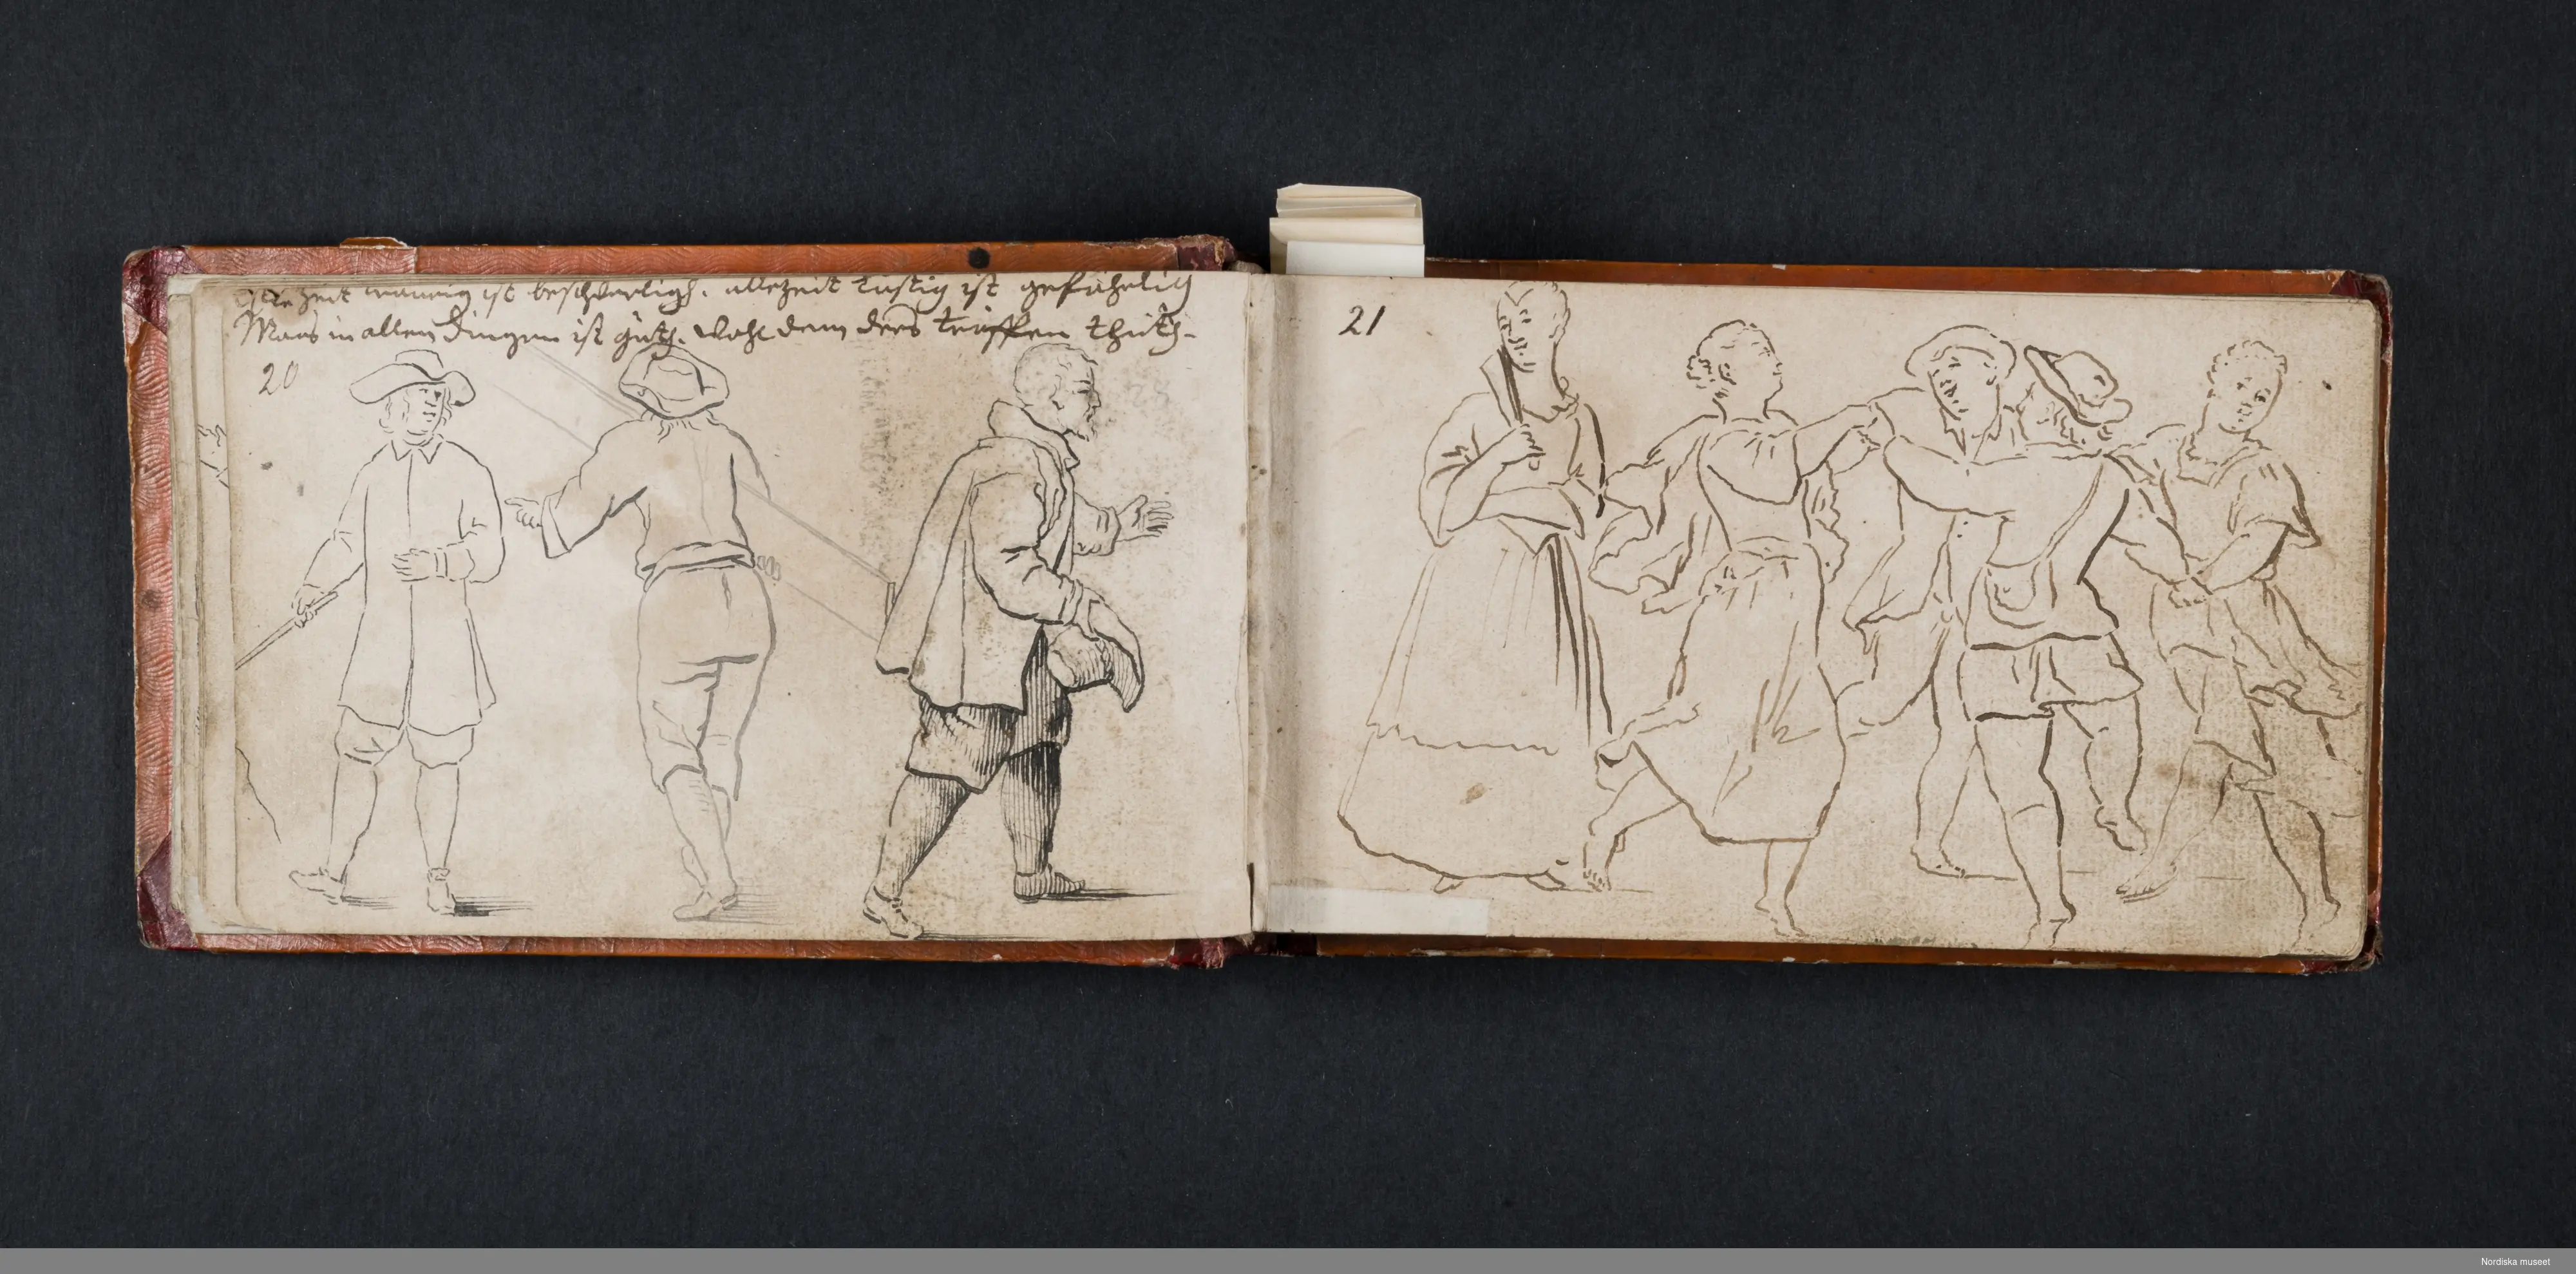 Allezeit traurig ist beschwerligh. allezeit lustig ist gefährlig
Maas in allen Dingen ist guth. wohl dem ders treffen thuth.
20
21
Nordiska museet